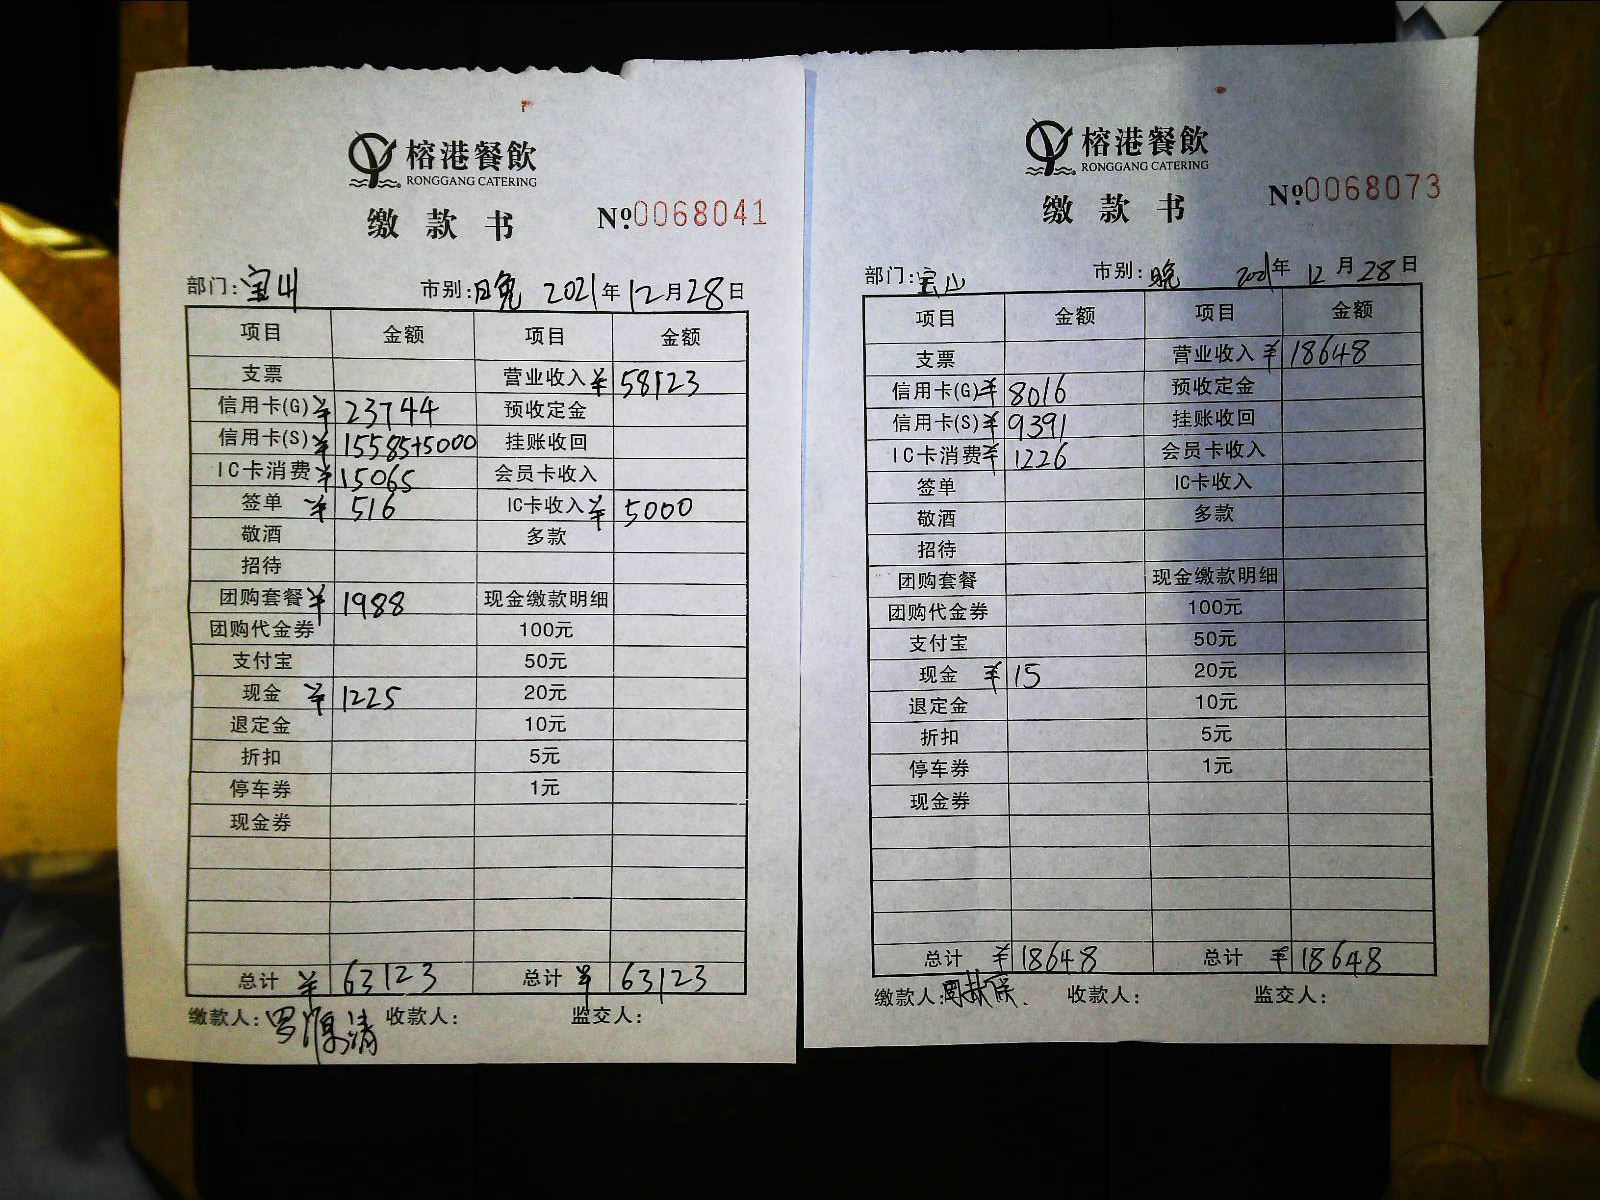 榕港餐飲
RONGGANG CATERING
缴款书 №0068041
部门:宝山 市别:晚 2021年12月28日
项目 金额 项目 金额
支票 营业收入 ¥58123
信用卡(G) ¥23744 预收定金
信用卡(S) ¥15585+5000 挂账收回
IC卡消费 ¥15065 会员卡收入
签单 ¥516 IC卡收入 ¥5000
敬酒 多款
招待
团购套餐 ¥1988 现金缴款明细
团购代金券 100元
支付宝 50元
现金 ¥1225 20元
退定金 10元
折扣 5元
停车券 1元
现金券
总计 ¥63123 总计 ¥63123
缴款人: 收款人: 监交人:
榕港餐飲
RONGGANG CATERING
缴款书 №0068073
部门:宝山 市别:晚 2021年12月28日
项目 金额 项目 金额
支票 营业收入 ¥18648
信用卡(G) ¥8016 预收定金
信用卡(S) ¥9391 挂账收回
IC卡消费 ¥1226 会员卡收入
签单 IC卡收入
敬酒 多款
招待
团购套餐 现金缴款明细
团购代金券 100元
支付宝 50元
现金 ¥15 20元
退定金 10元
折扣 5元
停车券 1元
现金券
总计 ¥18648 总计 ¥18648
缴款人: 收款人: 监交人: